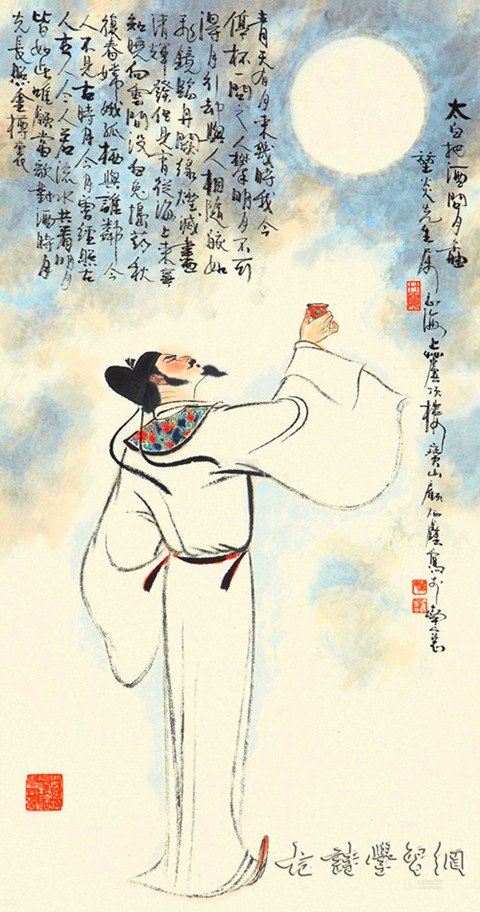 太白把酒問月圖
先生属
寶山顧炳鑫寫於
青天有月来幾時我今
停杯一問之人攀明月不可
得月行却與人相隨皎如
飛鏡臨丹闕緑煙滅盡
清輝發但見宵從海上来寧
知曉向雲間没白兔搗药秋
復春嫦娥孤栖與誰鄰今
人不見古時月今月曾經照古
人古人今人若流水共看明月
皆如此唯願當歌對酒時月
光長照金樽裏
古詩學習網